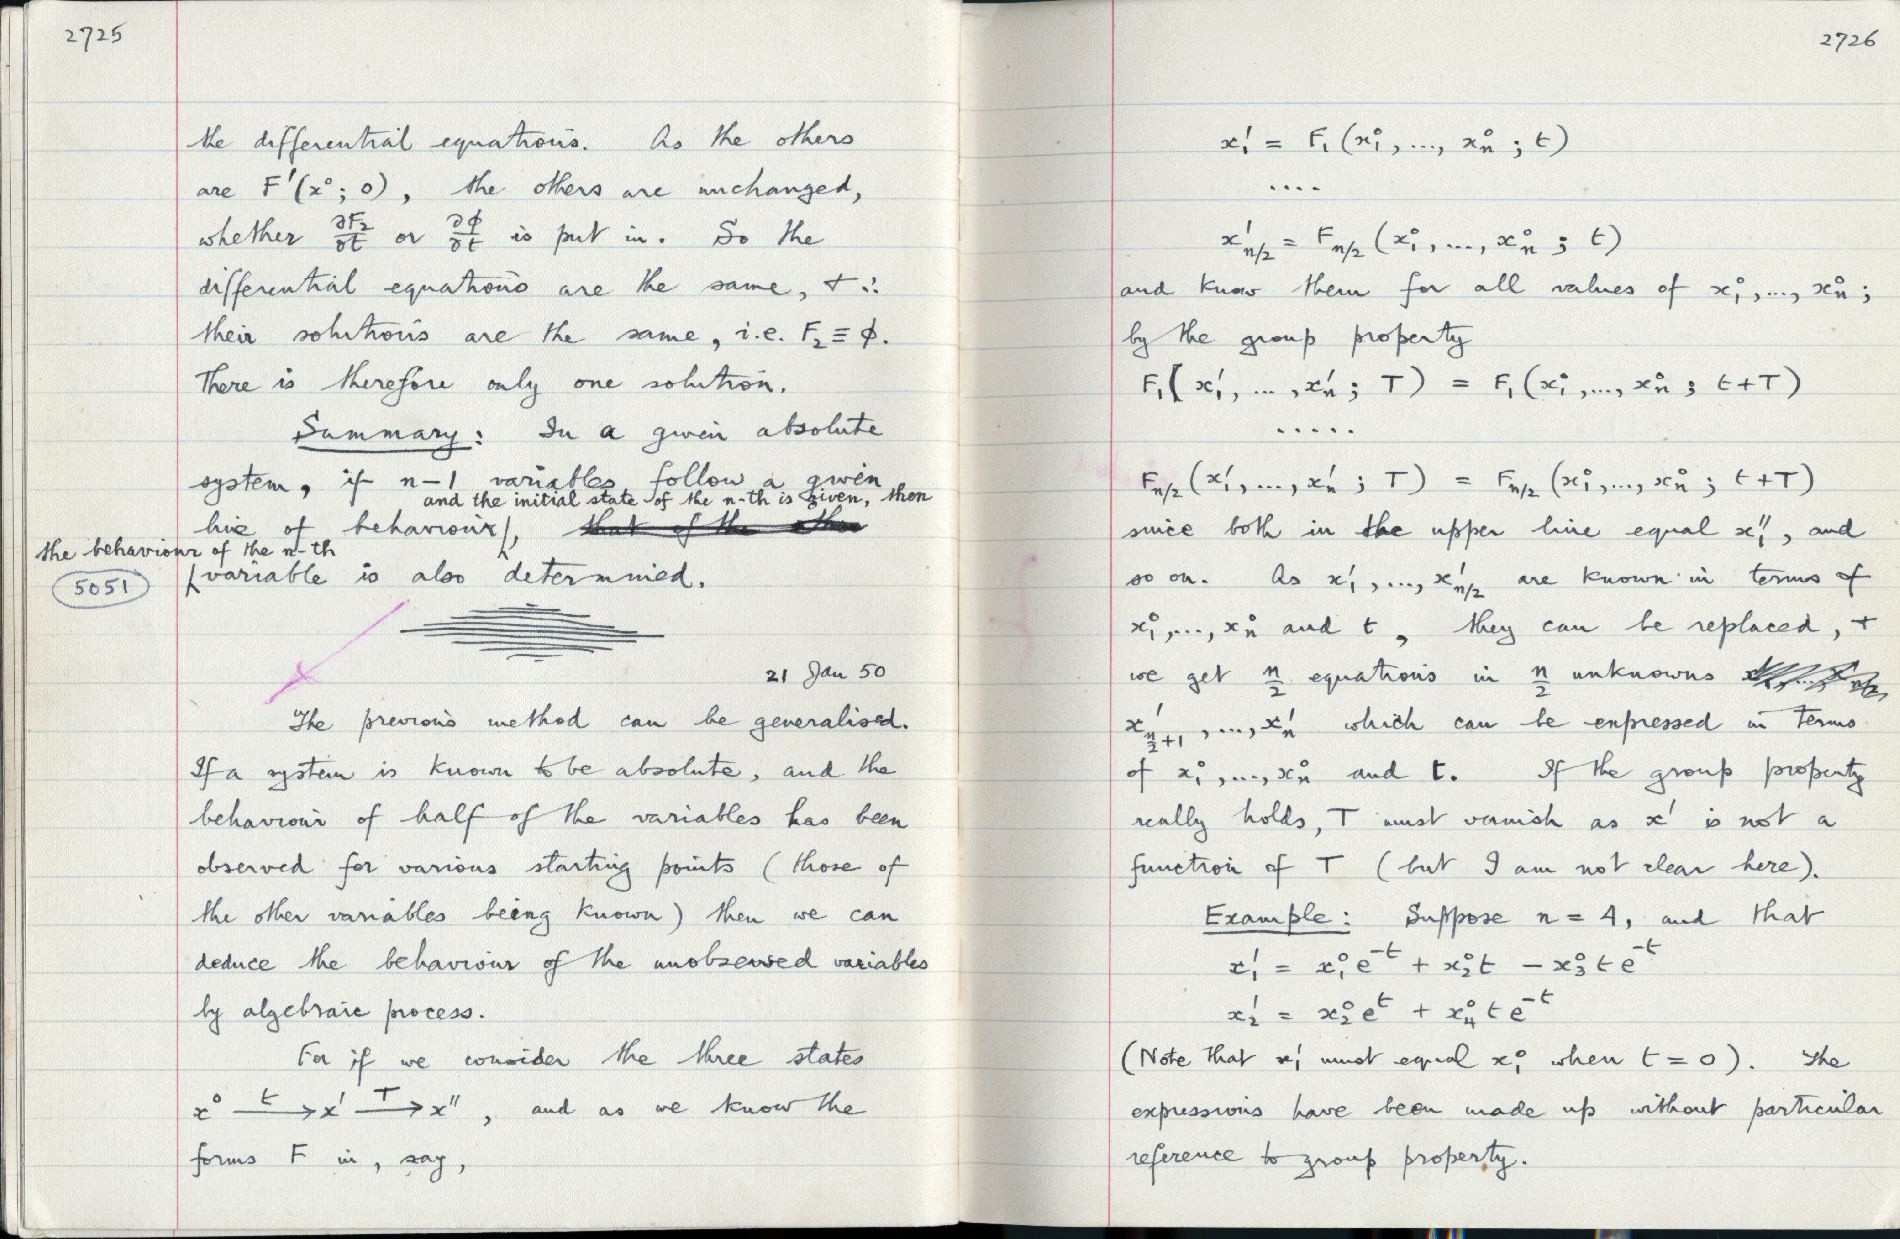 2725
the differential equations. As the others
are F'(x⁰; 0), the others are unchanged,
whether ∂F₂/∂t or ∂ϕ/∂t is put in. So the
differential equations are the same, + ∴
their solutions are the same, i.e. F₂ ≡ ϕ.
There is therefore only one solution.
Summary: In a given absolute
system, if n-1 variables follow a given
and the initial state of the n-th is given, then
line of behaviour, that of the other
the behaviour of the n-th
5051 variable is also determined.
21 Jan 50
The previous method can be generalised.
If a system is known to be absolute, and the
behaviour of half of the variables has been
observed for various starting points (those of
the other variables being known) then we can
deduce the behaviour of the unobserved variables
by algebraic process.
For if we consider the three states
x⁰ —t→ x' —T→ x'', and as we know the
forms F in, say,
2726
x₁' = F₁(x₁⁰, ..., xₙ⁰; t)
....
x'n/2 = Fn/2 (x₁⁰, ..., xₙ⁰; t)
and know them for all values of x₁⁰, ..., xₙ⁰;
by the group property
F₁(x₁', ..., xₙ'; T) = F₁(x₁⁰, ..., xₙ⁰; t+T)
.....
Fn/2 (x₁', ..., xₙ'; T) = Fn/2 (x₁⁰, ..., xₙ⁰; t+T)
since both in the upper line equal x₁'', and
so on. As x₁', ..., x'n/2 are known in terms of
x₁⁰, ..., xₙ⁰ and t, they can be replaced, +
we get n/2 equations in n/2 unknowns
x'n/2+1, ..., xₙ' which can be expressed in terms
of x₁⁰, ..., xₙ⁰ and t. If the group property
really holds, T must vanish as x' is not a
function of T (but I am not clear here).
Example: Suppose n = 4, and that
x₁' = x₁⁰e⁻ᵗ + x₂⁰t - x₃⁰te⁻ᵗ
x₂' = x₂⁰eᵗ + x₄⁰te⁻ᵗ
(Note that x₁' must equal x₁⁰ when t = 0). The
expressions have been made up without particular
reference to group property.